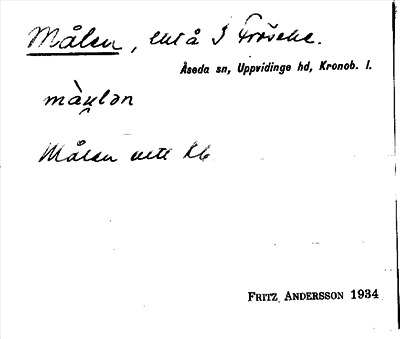 Målen, ent å I Fröseke.
Åseda sn, Uppvidinge hd, Kronob. l.
màu̯lən
Målen
FRITZ ANDERSSON 1934